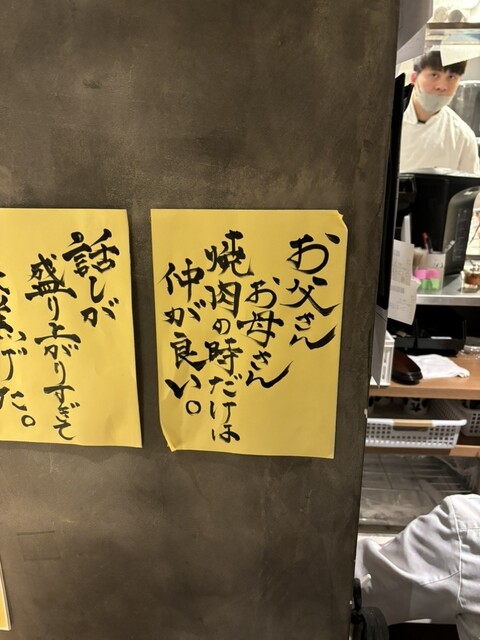 お父さん
お母さん
焼肉の時だけは
仲が良い。
話しが
盛り上がりすぎて
げた。